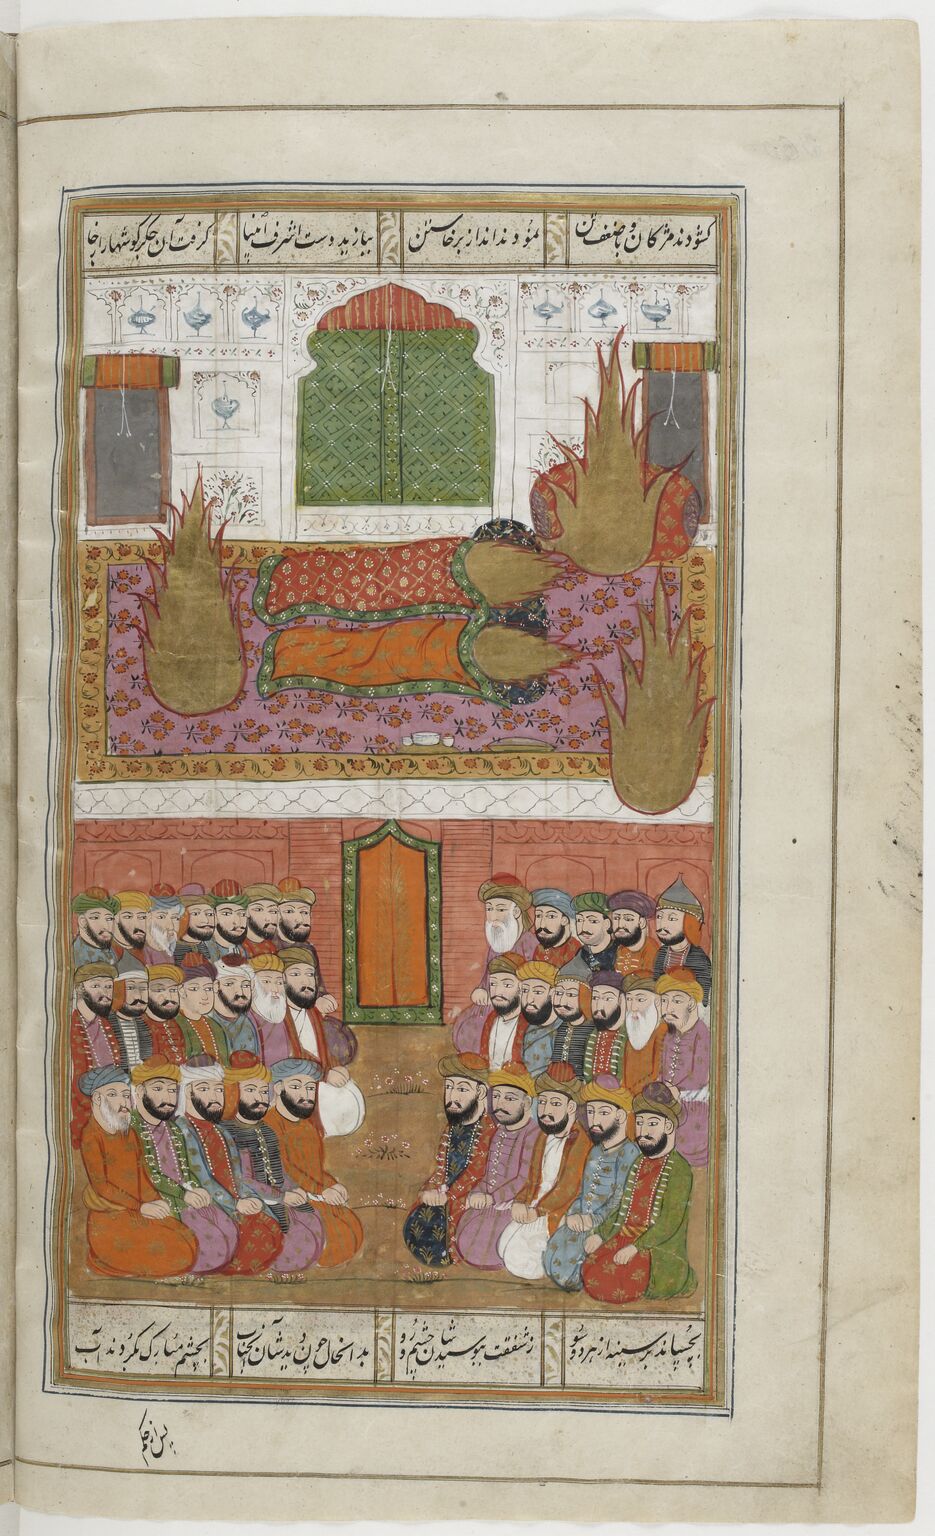 کشودند مژگان و با ضعف تن نمودند انداز برخاستن بیازید دست اشرف انبیا گرفت آن جگرکوشها را ز جا
بچسپاند بر سینه از هر دو سو ز شفقت ببوسیدشان چشم و رو بدانحال چون دیدشان آنجناب بچشم مبارک بگردند آب
پس از حکم